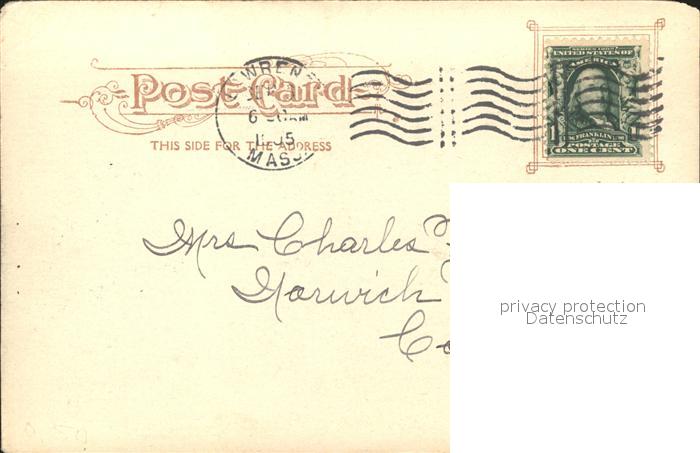 Post Card
THIS SIDE FOR THE ADDRESS
MASS.
SERIES 1902
UNITED STATES OF
AMERICA
FRANKLIN
POSTAGE
ONE CENT
Mrs Charles
Norwich
privacy protection
Datenschutz